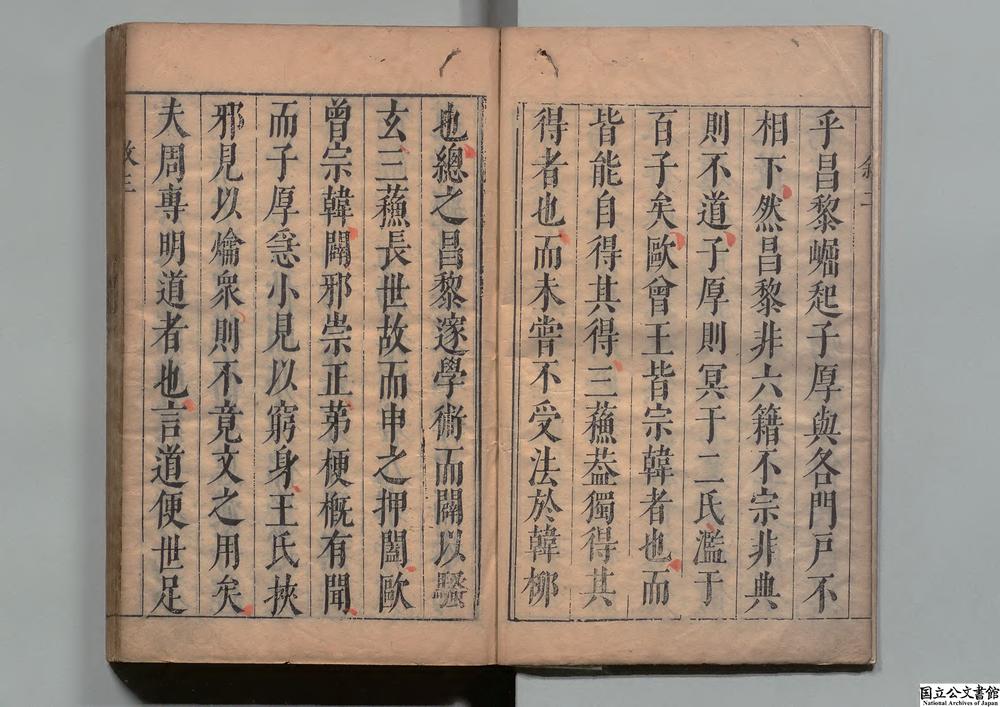 乎昌黎崛起子厚與各門戶不
相下然昌黎非六籍不宗非典
則不道子厚則冥于二氏濫于
百子矣歐曾王皆宗韓者也而
皆能自得其得三蘓葢獨得其
得者也而未嘗不受法於韓柳
也總之昌黎邃學術而闢以
玄三蘓長世故而申之押闔歐
曾宗韓闢邪崇正苐梗概有聞
而子厚急小見以窮身王氏挾
邪見以爚衆則不竟文之用矣
夫周專明道者也言道便世足
国立公文書館
National Archives of Japan